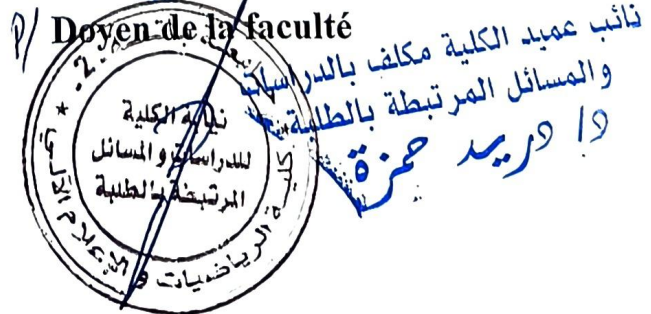 P/ Doyen de la faculté
نائب عميد الكلية مكلف بالدراسات
والمسائل المرتبطة بالطلبة
د/ دريد حمزة
نيابة الكلية
للدراسات والمسائل
المرتبطة بالطلبة
كلية الرياضيات و الإعلام الآلي